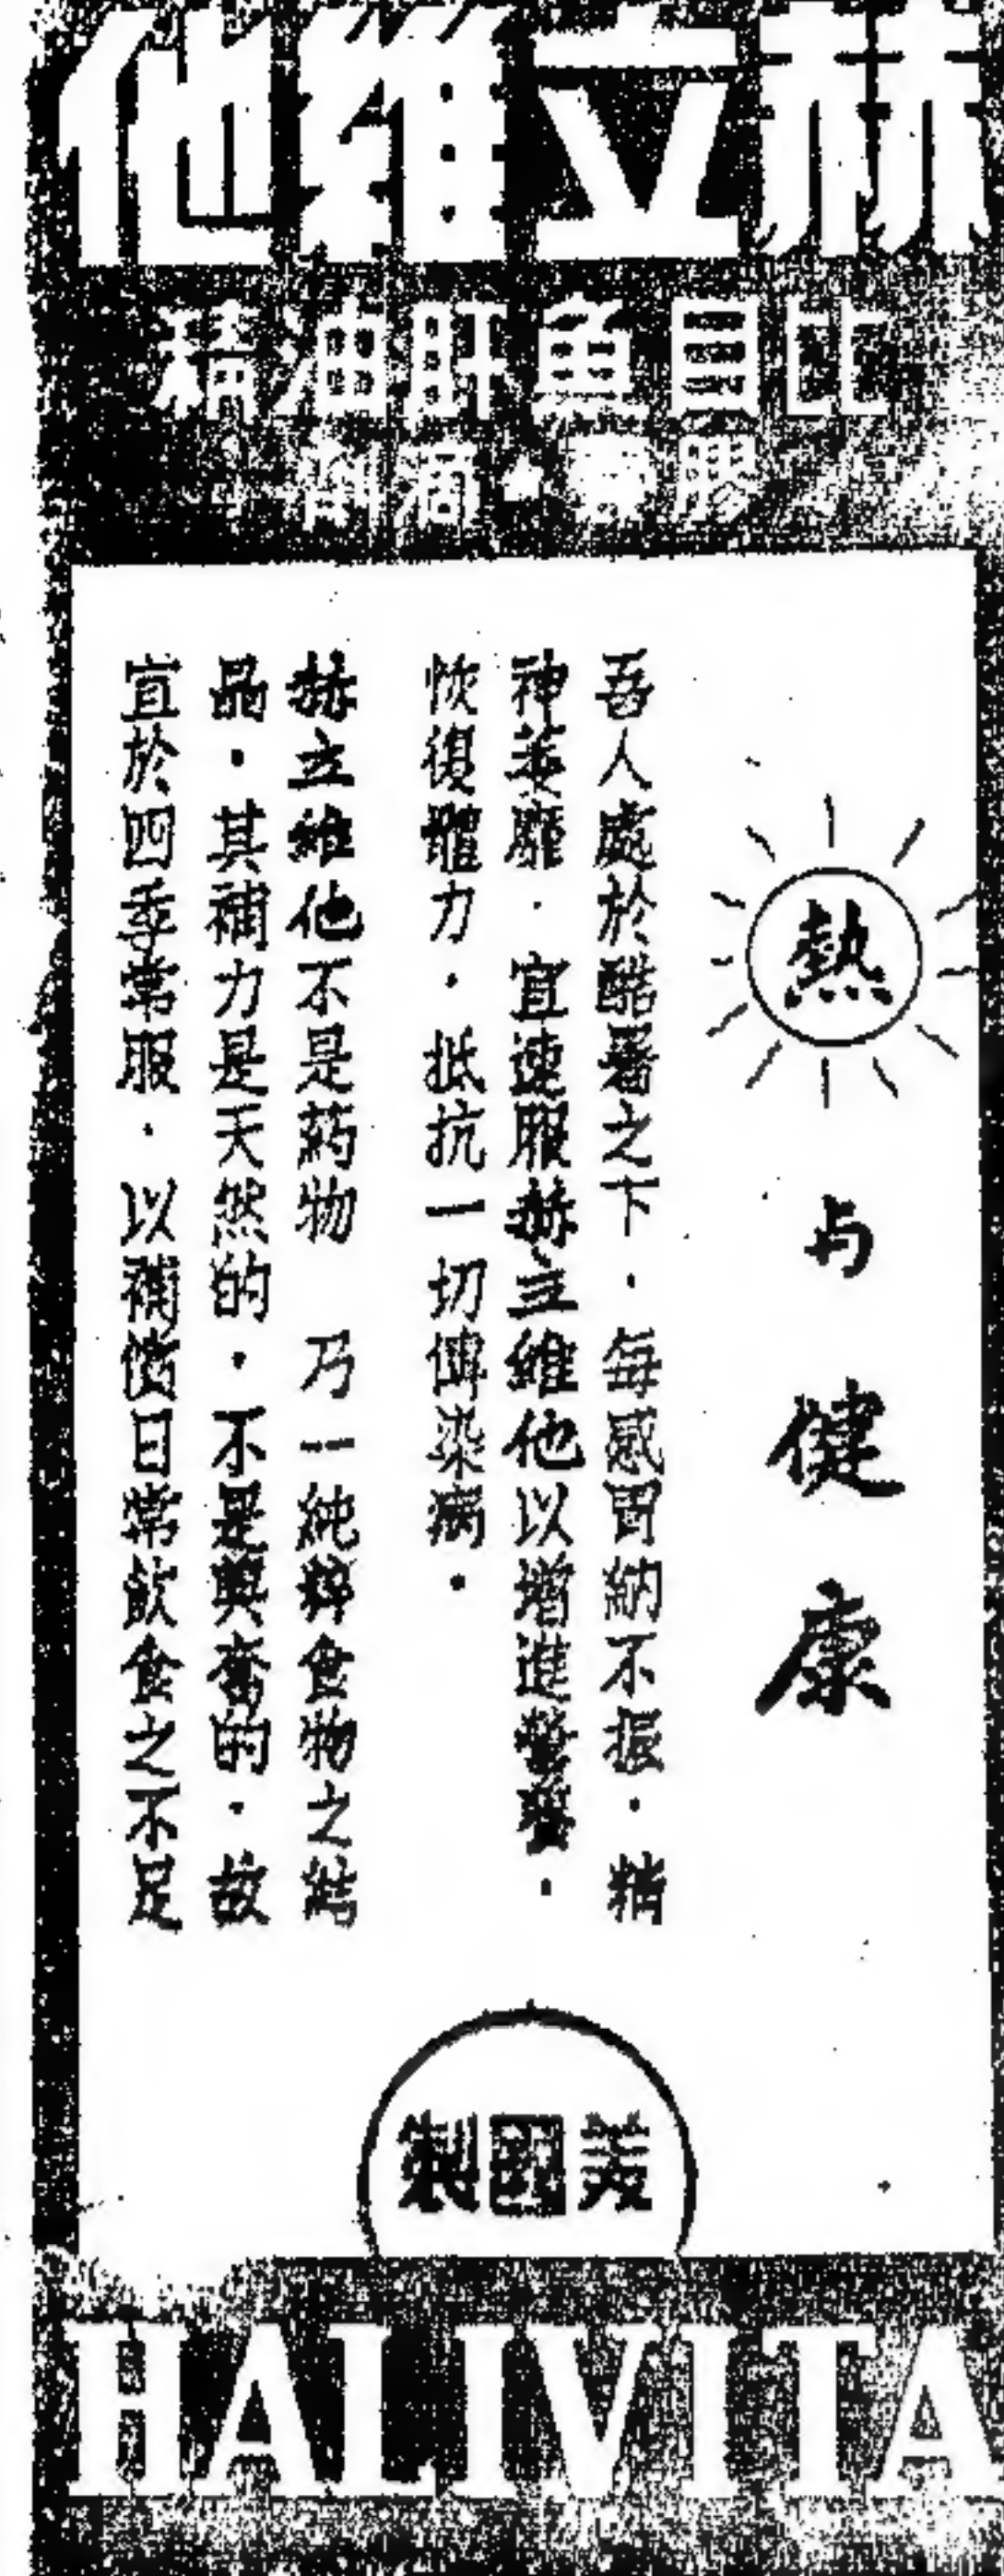 赫立維他
比目魚肝油精
膠囊・滴劑
熱与健康
吾人處於酷暑之下・每感胃納不振・精
神萎靡・宜速服赫立維他以增進營養・
恢復體力・抵抗一切傳染病・
赫立維他不是葯物 乃一純粹食物之結
品・其補力是天然的・不是興奮的・故
宜於四季常服・以補償日常飲食之不足
美國製
HALIVITA